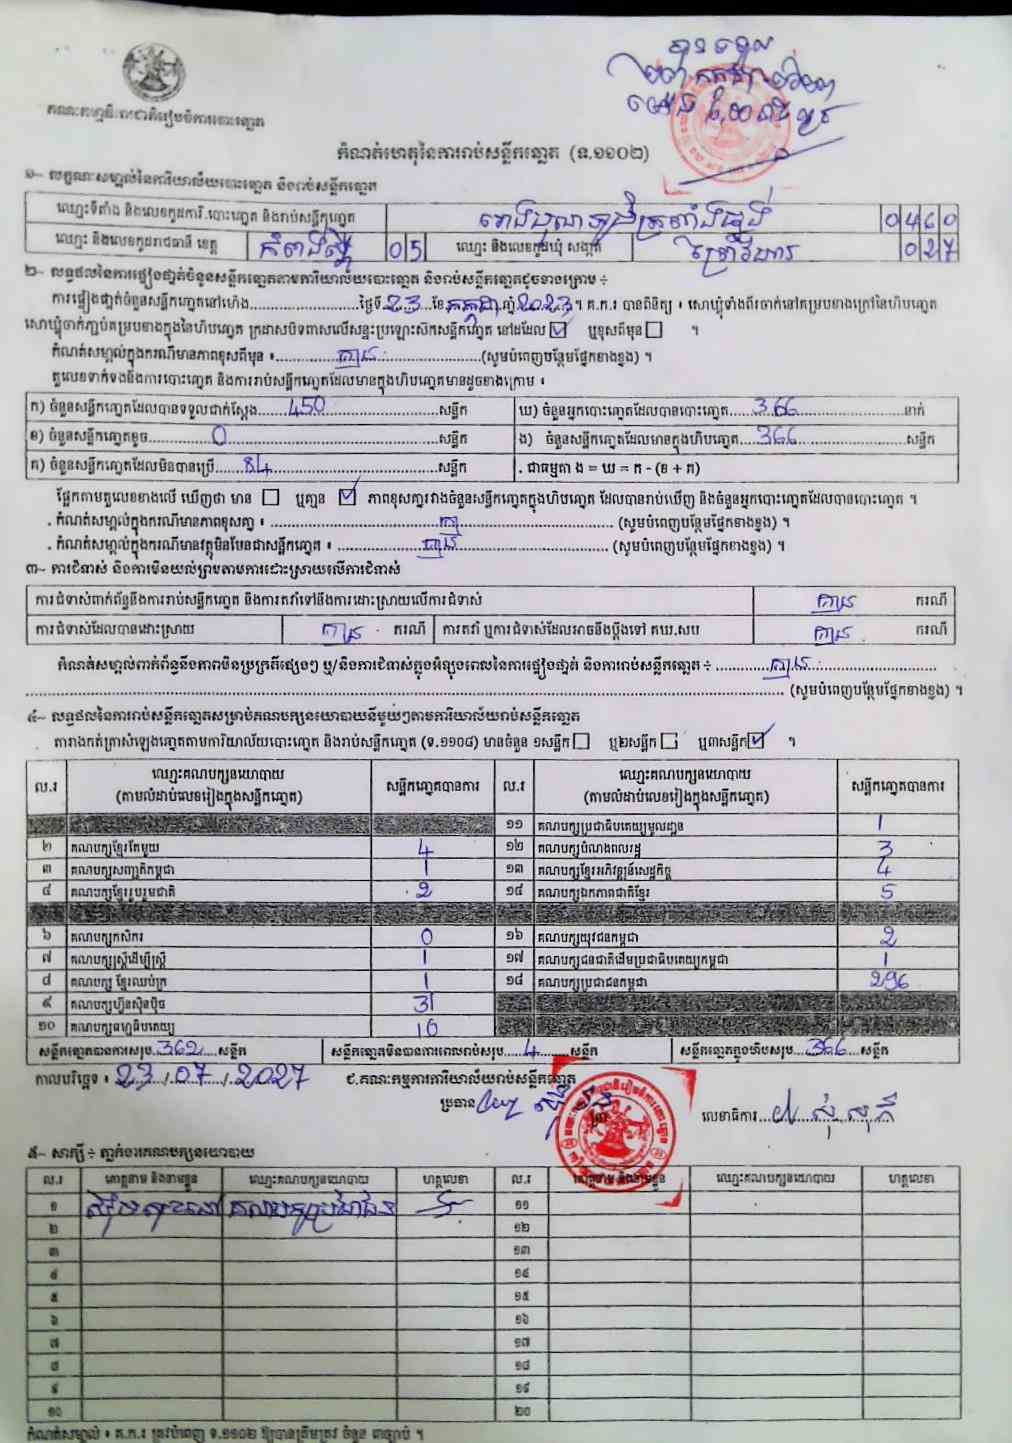 គណៈកម្មាធិការជាតិរៀបចំការបោះឆ្នោត
បានទទួល
កំណត់ហេតុនៃការរាប់សន្លឹកឆ្នោត (ទ.១១០២)
១~ លក្ខណៈសម្គាល់នៃការិយាល័យបោះឆ្នោត និងរាប់សន្លឹកឆ្នោត
ឈ្មោះទីតាំង និងលេខកូដការិ.បោះឆ្នោត និងរាប់សន្លឹកឆ្នោត 0460
ឈ្មោះ និងលេខកូដរាជធានី ខេត្ត កំពង់ស្ពឺ 05 ឈ្មោះ និងលេខកូដឃុំ សង្កាត់ 027
២~ លទ្ធផលនៃការផ្ទៀងផ្ទាត់ចំនួនសន្លឹកឆ្នោតតាមការិយាល័យបោះឆ្នោត និងរាប់សន្លឹកឆ្នោតដូចខាងក្រោម ÷
ការផ្ទៀងផ្ទាត់ចំនួនសន្លឹកឆ្នោតនៅម៉ោង..........ថ្ងៃទី 23 ខែ កក្កដា ឆ្នាំ 2023 ។ គ.ក.រ បានពិនិត្យ ៖ សោប្លុំទាំងពីរចាក់នៅគម្របខាងក្រៅនៃហិបឆ្នោត
សោប្លុំចាក់ភ្ជាប់គម្របខាងក្នុងនៃហិបឆ្នោត ក្រដាសបិទពាសលើសន្ទះប្រឡោះស៊កសន្លឹកឆ្នោត នៅដដែល ☑ ឬខុសពីមុន ☐ ។
កំណត់សម្គាល់ក្នុងករណីមានភាពខុសពីមុន ៖ គ្មាន (សូមបំពេញបន្ថែមផ្នែកខាងខ្នង) ។
តួលេខទាក់ទងនឹងការបោះឆ្នោត និងការរាប់សន្លឹកឆ្នោតដែលមានក្នុងហិបឆ្នោតមានដូចខាងក្រោម ៖
ក) ចំនួនសន្លឹកឆ្នោតដែលបានទទួលជាក់ស្តែង 450 សន្លឹក ឃ) ចំនួនអ្នកបោះឆ្នោតដែលបានបោះឆ្នោត 366 នាក់
ខ) ចំនួនសន្លឹកឆ្នោតខូច 0 សន្លឹក ង) ចំនួនសន្លឹកឆ្នោតដែលមានក្នុងហិបឆ្នោត 366 សន្លឹក
គ) ចំនួនសន្លឹកឆ្នោតដែលមិនបានប្រើ 84 សន្លឹក . ជាធម្មតា ង = ឃ = ក - (ខ + គ)
ផ្អែកតាមតួលេខខាងលើ ឃើញថា មាន ☐ ឬគ្មាន ☑ ភាពខុសគ្នារវាងចំនួនសន្លឹកឆ្នោតក្នុងហិបឆ្នោត ដែលបានរាប់ឃើញ និងចំនួនអ្នកបោះឆ្នោតដែលបានបោះឆ្នោត ។
. កំណត់សម្គាល់ក្នុងករណីមានភាពខុសគ្នា ៖ (សូមបំពេញបន្ថែមផ្នែកខាងខ្នង) ។
. កំណត់សម្គាល់ក្នុងករណីមានវត្ថុមិនមែនជាសន្លឹកឆ្នោត ៖ គ្មាន (សូមបំពេញបន្ថែមផ្នែកខាងខ្នង) ។
៣~ ការជំទាស់ និងការមិនយល់ព្រមតាមការដោះស្រាយលើការជំទាស់
ការជំទាស់ពាក់ព័ន្ធនឹងការរាប់សន្លឹកឆ្នោត និងការតវ៉ាទៅនឹងការដោះស្រាយលើការជំទាស់ គ្មាន ករណី
ការជំទាស់ដែលបានដោះស្រាយ គ្មាន ករណី ការតវ៉ា ឬការជំទាស់ដែលអាចនឹងប្តឹងទៅ គឃ.សប គ្មាន ករណី
កំណត់សម្គាល់ពាក់ព័ន្ធនឹងភាពមិនប្រក្រតីផ្សេងៗ ឬ/និងការជំទាស់ក្នុងអំឡុងពេលនៃការផ្ទៀងផ្ទាត់ និងការរាប់សន្លឹកឆ្នោត ÷ គ្មាន
(សូមបំពេញបន្ថែមផ្នែកខាងខ្នង) ។
៤~ លទ្ធផលនៃការរាប់សន្លឹកឆ្នោតសម្រាប់គណបក្សនយោបាយនីមួយៗតាមការិយាល័យរាប់សន្លឹកឆ្នោត
តារាងកត់ត្រាសំឡេងឆ្នោតតាមការិយាល័យបោះឆ្នោត និងរាប់សន្លឹកឆ្នោត (ទ.១១០៨) មានចំនួន ១សន្លឹក ☐ ឬ២សន្លឹក ☐ ឬ៣សន្លឹក ☑ ។
ល.រ ឈ្មោះគណបក្សនយោបាយ (តាមលំដាប់លេខរៀងក្នុងសន្លឹកឆ្នោត) សន្លឹកឆ្នោតបានការ ល.រ ឈ្មោះគណបក្សនយោបាយ (តាមលំដាប់លេខរៀងក្នុងសន្លឹកឆ្នោត) សន្លឹកឆ្នោតបានការ
១១ គណបក្សប្រជាធិបតេយ្យមូលដ្ឋាន 1
២ គណបក្សខ្មែរតែមួយ 4 ១២ គណបក្សបំណងពលរដ្ឋ 3
៣ គណបក្សសញ្ជាតិកម្ពុជា 1 ១៣ គណបក្សខ្មែរអភិវឌ្ឍន៍សេដ្ឋកិច្ច 4
៤ គណបក្សខ្មែររួបរួមជាតិ 2 ១៤ គណបក្សឯកភាពជាតិខ្មែរ 5
៦ គណបក្សកសិករ 0 ១៦ គណបក្សយុវជនកម្ពុជា 2
៧ គណបក្សស្ត្រីដើម្បីស្ត្រី 1 ១៧ គណបក្សជនជាតិដើមប្រជាធិបតេយ្យកម្ពុជា 1
៨ គណបក្ស ខ្មែរឈប់ក្រ 1 ១៨ គណបក្សប្រជាជនកម្ពុជា 296
៩ គណបក្សហ៊្វុនស៊ិនប៉ិច 31
១០ គណបក្សធម្មាធិបតេយ្យ 10
សន្លឹកឆ្នោតបានការសរុប 362 សន្លឹក សន្លឹកឆ្នោតមិនបានការពេលរាប់សរុប 4 សន្លឹក សន្លឹកឆ្នោតក្នុងហិបសរុប 366 សន្លឹក
កាលបរិច្ឆេទ ៖ 23 / 07 / 2027 ជ.គណៈកម្មការការិយាល័យរាប់សន្លឹកឆ្នោត
ប្រធាន លេខាធិការ
៥~ សាក្សី ÷ ភ្នាក់ងារគណបក្សនយោបាយ
ល.រ គោត្តនាម និងនាមខ្លួន ឈ្មោះគណបក្សនយោបាយ ហត្ថលេខា ល.រ គោត្តនាម និងនាមខ្លួន ឈ្មោះគណបក្សនយោបាយ ហត្ថលេខា
១ គណបក្សប្រជាជន ១១
២ ១២
៣ ១៣
៤ ១៤
៥ ១៥
៦ ១៦
៧ ១៧
៨ ១៨
៩ ១៩
១០ ២០
កំណត់សម្គាល់ ៖ គ.ក.រ ត្រូវបំពេញ ទ.១១០២ ឱ្យបានត្រឹមត្រូវ ចំនួន ៣ច្បាប់ ។